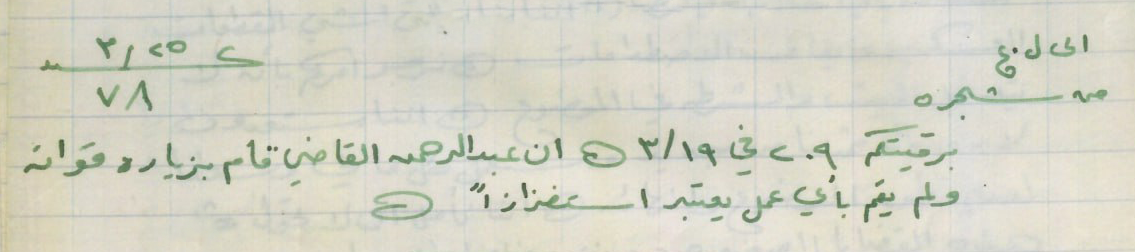 الى ل.ع
٢٥/٣
من شجره
٧٨
برقيتكم ٢٠٩ في ٣/١٩ ان عبدالرحمن القاضي قام بزياره قواته
ولم يقم بأي عمل يعتبر استفزازاً